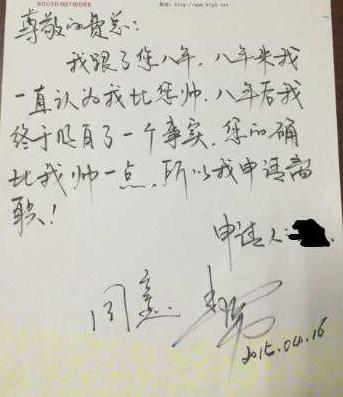 SOUTH NETWORK
尊敬的费总:
我跟了您八年,八年来我
一直认为我比您帅,八年后我
终于正自了一个事实,您的确
比我帅一点,所以我申请离
职!
申请人:
同意
2015.04.16